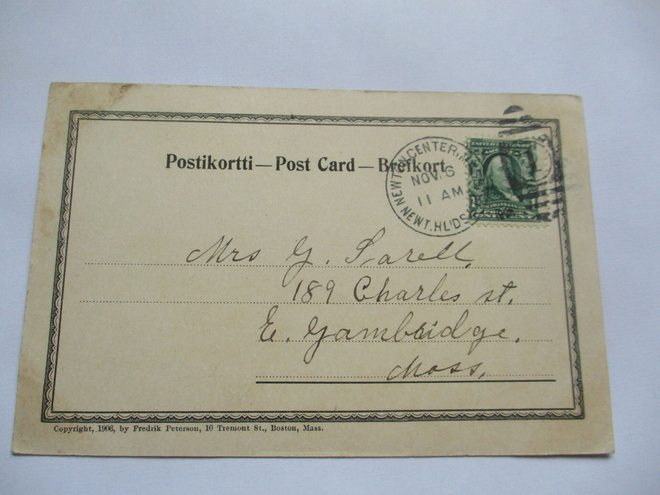 Postikortti—Post Card—Brefkort
NEWTON CENTER.
NOV. 6
11 AM
NEWT. HL'DS
Mrs G. Sarell,
189 Charles st.
E. Gambridge,
Mass,
Copyright, 1906, by Fredrik Peterson, 10 Tremont St., Boston, Mass.